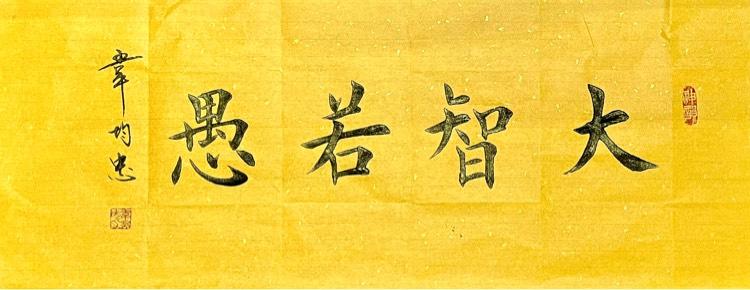 大智若愚
韋均忠